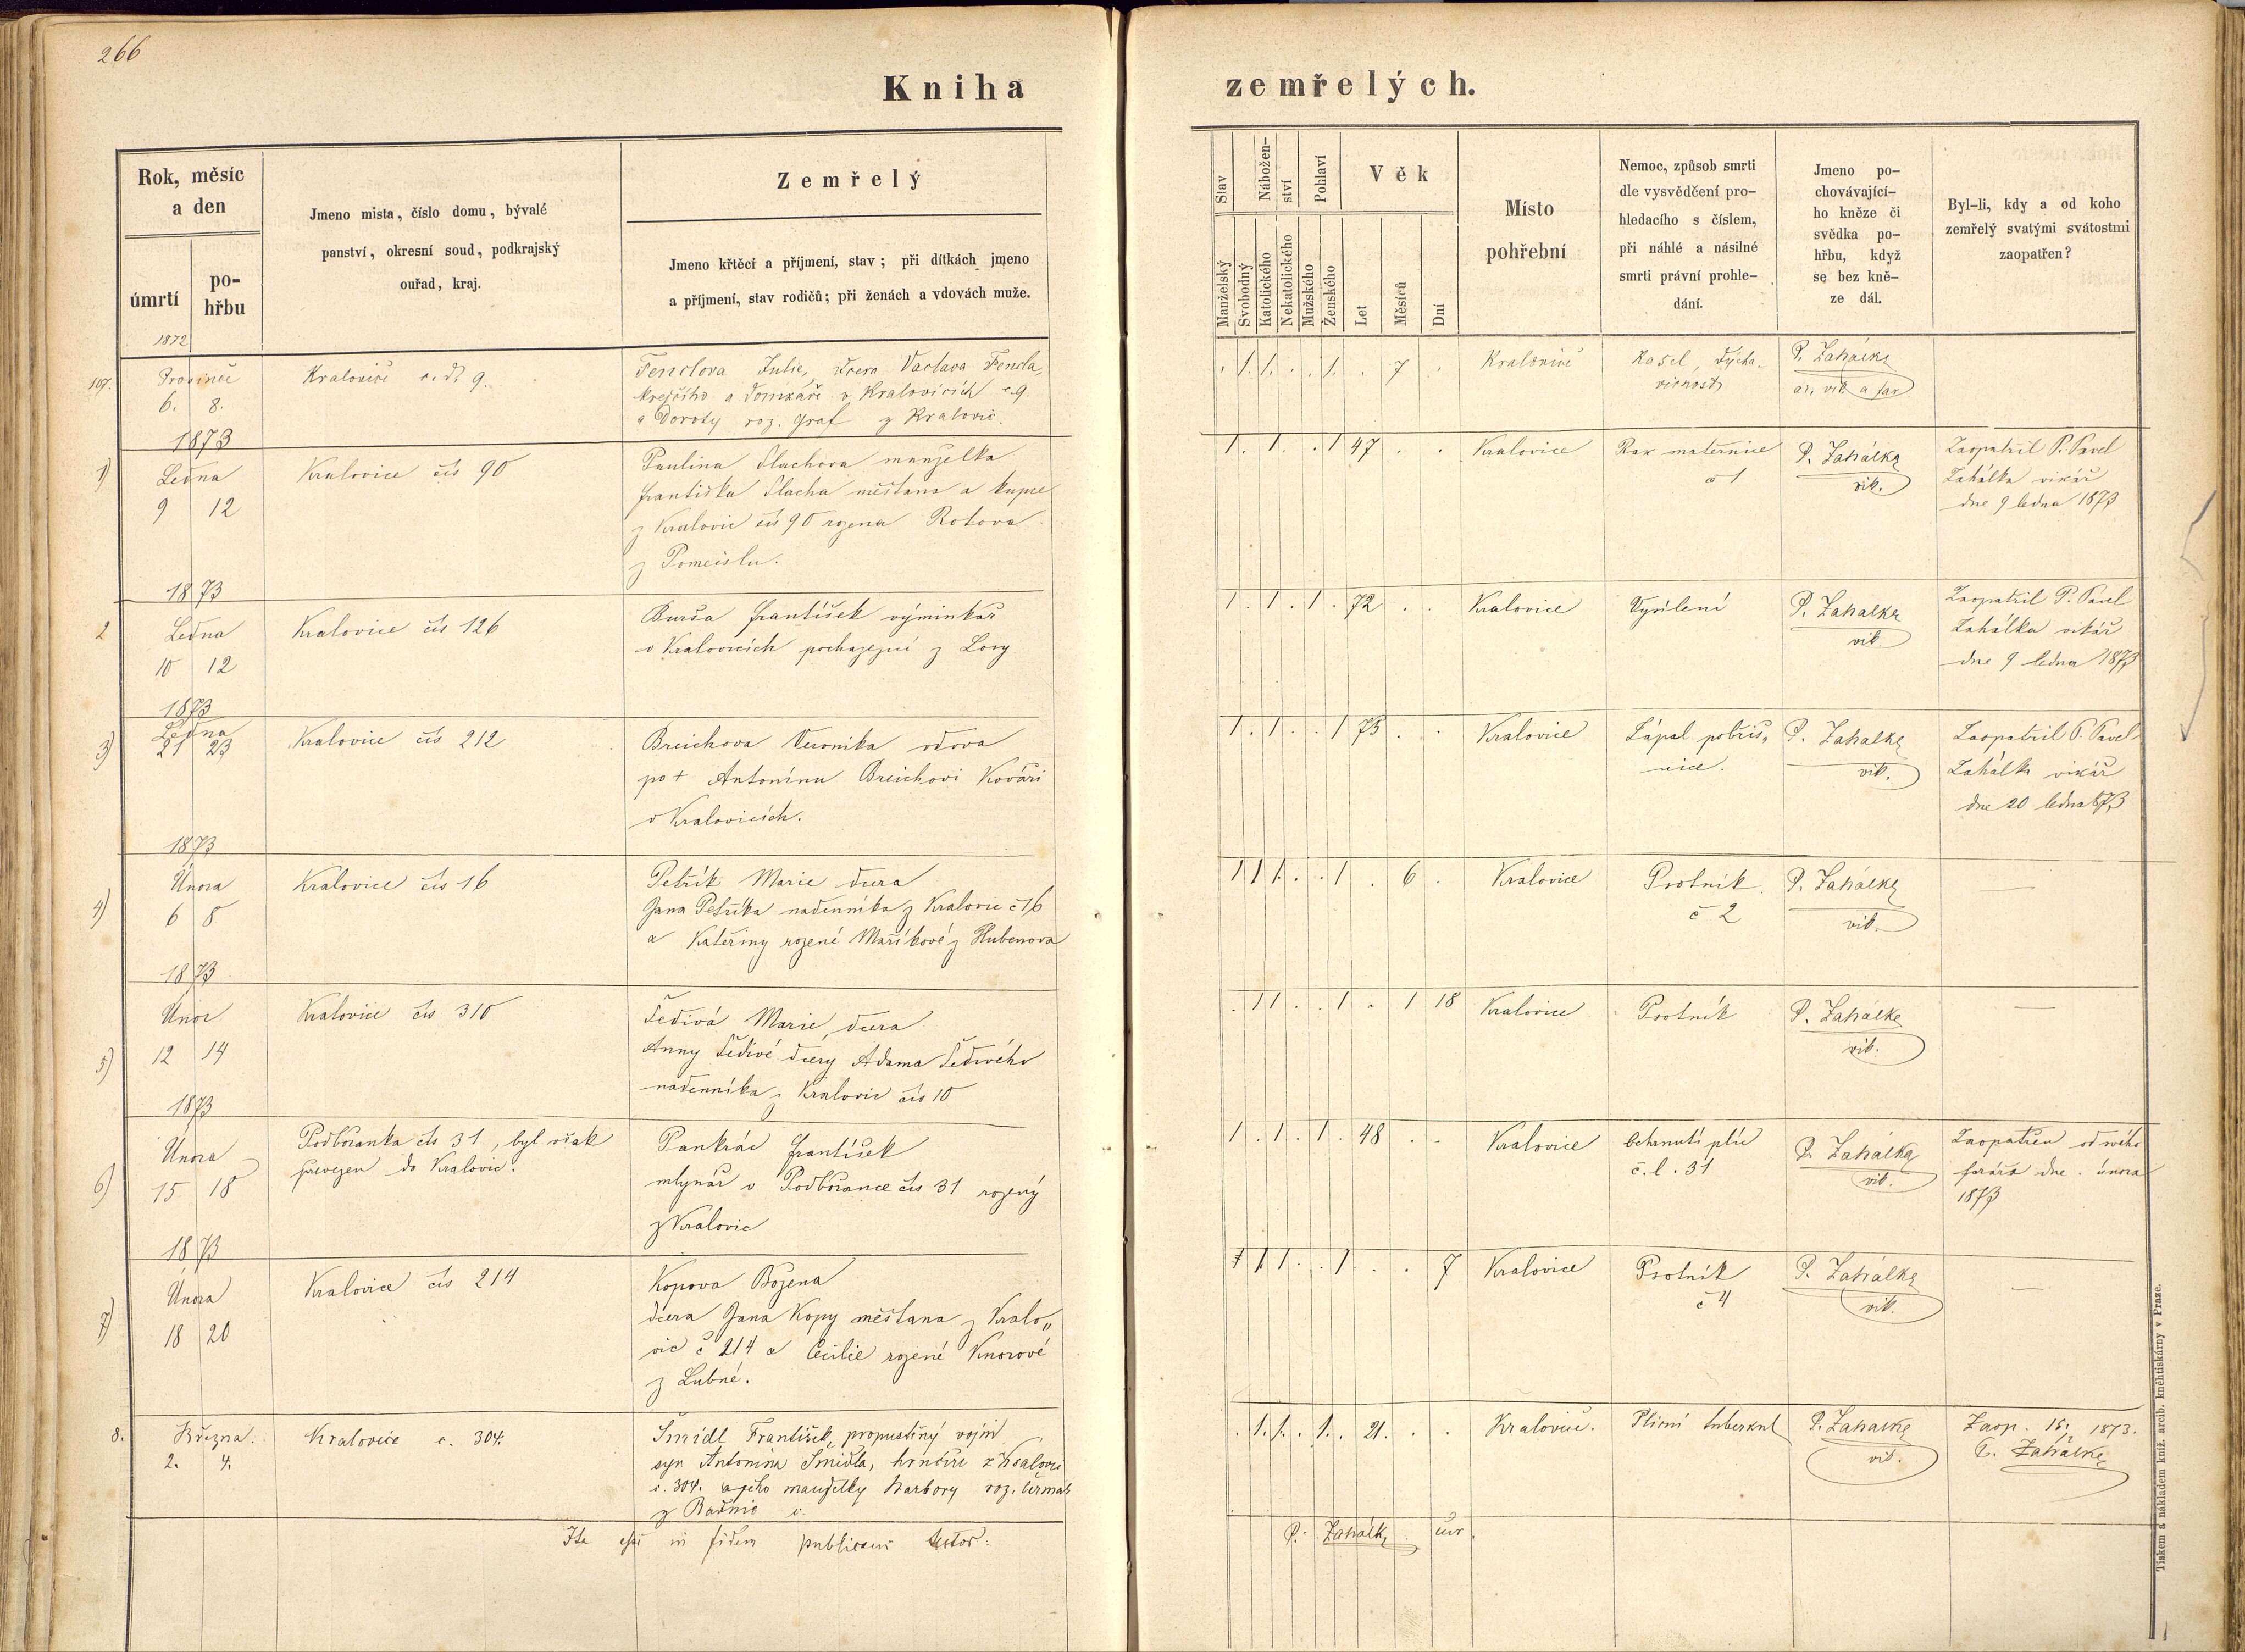 266
Kniha zemřelých.
Rok, měsíc
a den
úmrtí
po-
hřbu
Jmeno místa, číslo domu, bývalé
panství, okresní soud, podkrajský
ouřad, kraj.
Zemřelý
Jmeno křtěcí a příjmení, stav; při dítkách jmeno
a příjmení, stav rodičů; při ženách a vdovách muže.
Stav
Manželský
Svobodný
Nábožen-
ství
Katolického
Nekatolického
Pohlaví
Mužského
Ženského
Věk
Let
Měsíců
Dní
Místo
pohřební
Nemoc, způsob smrti
dle vysvědčení pro-
hledacího s číslem,
při náhlé a násilné
smrti právní prohle-
dání.
Jmeno po-
chovávající-
ho kněze či
svědka po-
hřbu, když
se bez kně-
ze dál.
Byl-li, kdy a od koho
zemřelý svatými svátostmi
zaopatřen?
1872
107. Prosince
6. 8.
Kralovice č. d. 9.
Fenclova Julie, dcera Vaclava Fencla,
krejčího a domkáře v Kralovicích č. 9.
a Doroty roz. Graf z Kralovic.
. 1. 1. . . 1. . 7 .
Kralovice
Kašel, dycha-
vičnost
P. Zahálka
1873
1) Ledna
9 12
Kralovice čís 90
Paulina Slachova manželka
Františka Slacha měšťana a kupce
z Kralovic čís 90 rozena Rotova
z Pomeislu.
1 . 1 . . 1 47 . .
Kralovice
Rak maternice
č 1
P. Zahálka
vik.
Zaopatřil P. Pavel
Zahálka vikář
dne 9 ledna 1873
1873
2 Ledna
10 12
Kralovice čís 126
Burša František výminkář
v Kralovicích pocházející z Lovy
1 . 1 . 1 . 72 . .
Kralovice
Vysílení
P. Zahálka
vik.
Zaopatřil P. Pavel
Zahálka vikář
dne 9 ledna 1873
1873
3) Ledna
21 23
Kralovice čís 212
Breichova Veronika vdova
po + Antonínu Breichovi Kováři
v Kralovicích.
1 . 1 . . 1 75 . .
Kralovice
Zápal pobřiš„
nice.
P. Zahálka
vik.
Zaopatřil P. Pavel
Zahálka vikář
dne 20 ledna 873
1873
4) Února
6 8
Kralovice čís 16
Petřík Marie dcera
Jana Petříka nadenníka z Kralovic č 16
a Kateřiny rozené Maříkové z Hubenova
1 1 1 . . 1 . 6 .
Kralovice
Psotník
č 2
P. Zahálka
vik.
1873
Únor
5) 12 14
Kralovice čís 310
Šedivá Marie, dcera
Anny Šedivé dcery Adama Šedivého
nadenníka z Kralovic čís 10
. 1 1 . . 1 . 1 18
Kralovice
Psotník
P. Zahálka
vik.
1873
Února
6) 15 18
Podbořanka čís 31, byl však
převezen do Kralovic.
Pankrác František
mlynář v Podbořance čís 31 rozený
z Kralovic
1 . 1 . 1 . 48 . .
Kralovice
Ochrnutí plic
č. l. 31
P. Zahálka
vik.
Zaopatřen od
faráře dne . února
1873
1873
Února
7) 18 20
Kralovice čís 214
Kopova Božena
dcera Jana Kopy měšťana z Kralo„
vic č 214 a Cecilie rozené Knorové
z Lubné.
1 1 1 . . 1 . . 7
Kralovice
Psotník
č 4
P. Zahálka
vik.
8. Března.
2. 4.
Kralovice č. 304.
Šmídl František, propustěný vojín
syn Antonína Šmídla, hrnčíře z Kralovic
č. 304. a jeho manželky Barbory roz. Čermák
z Radnic č.
. 1. 1. . 1. . 21. . .
Kralovice.
Plicní tuberkul
P. Zahálka
vik.
Zaop. 1873.
P. Zahálka
Ita esse in fidem publicam testor:
P. Zahálka
Tiskem a nákladem kníž. arcib. kněhtiskárny v Praze.